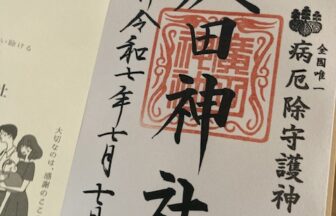 全国唯一
病厄除守護神
田神社
令和七年七月
大切なのは、感謝のここ
助ける